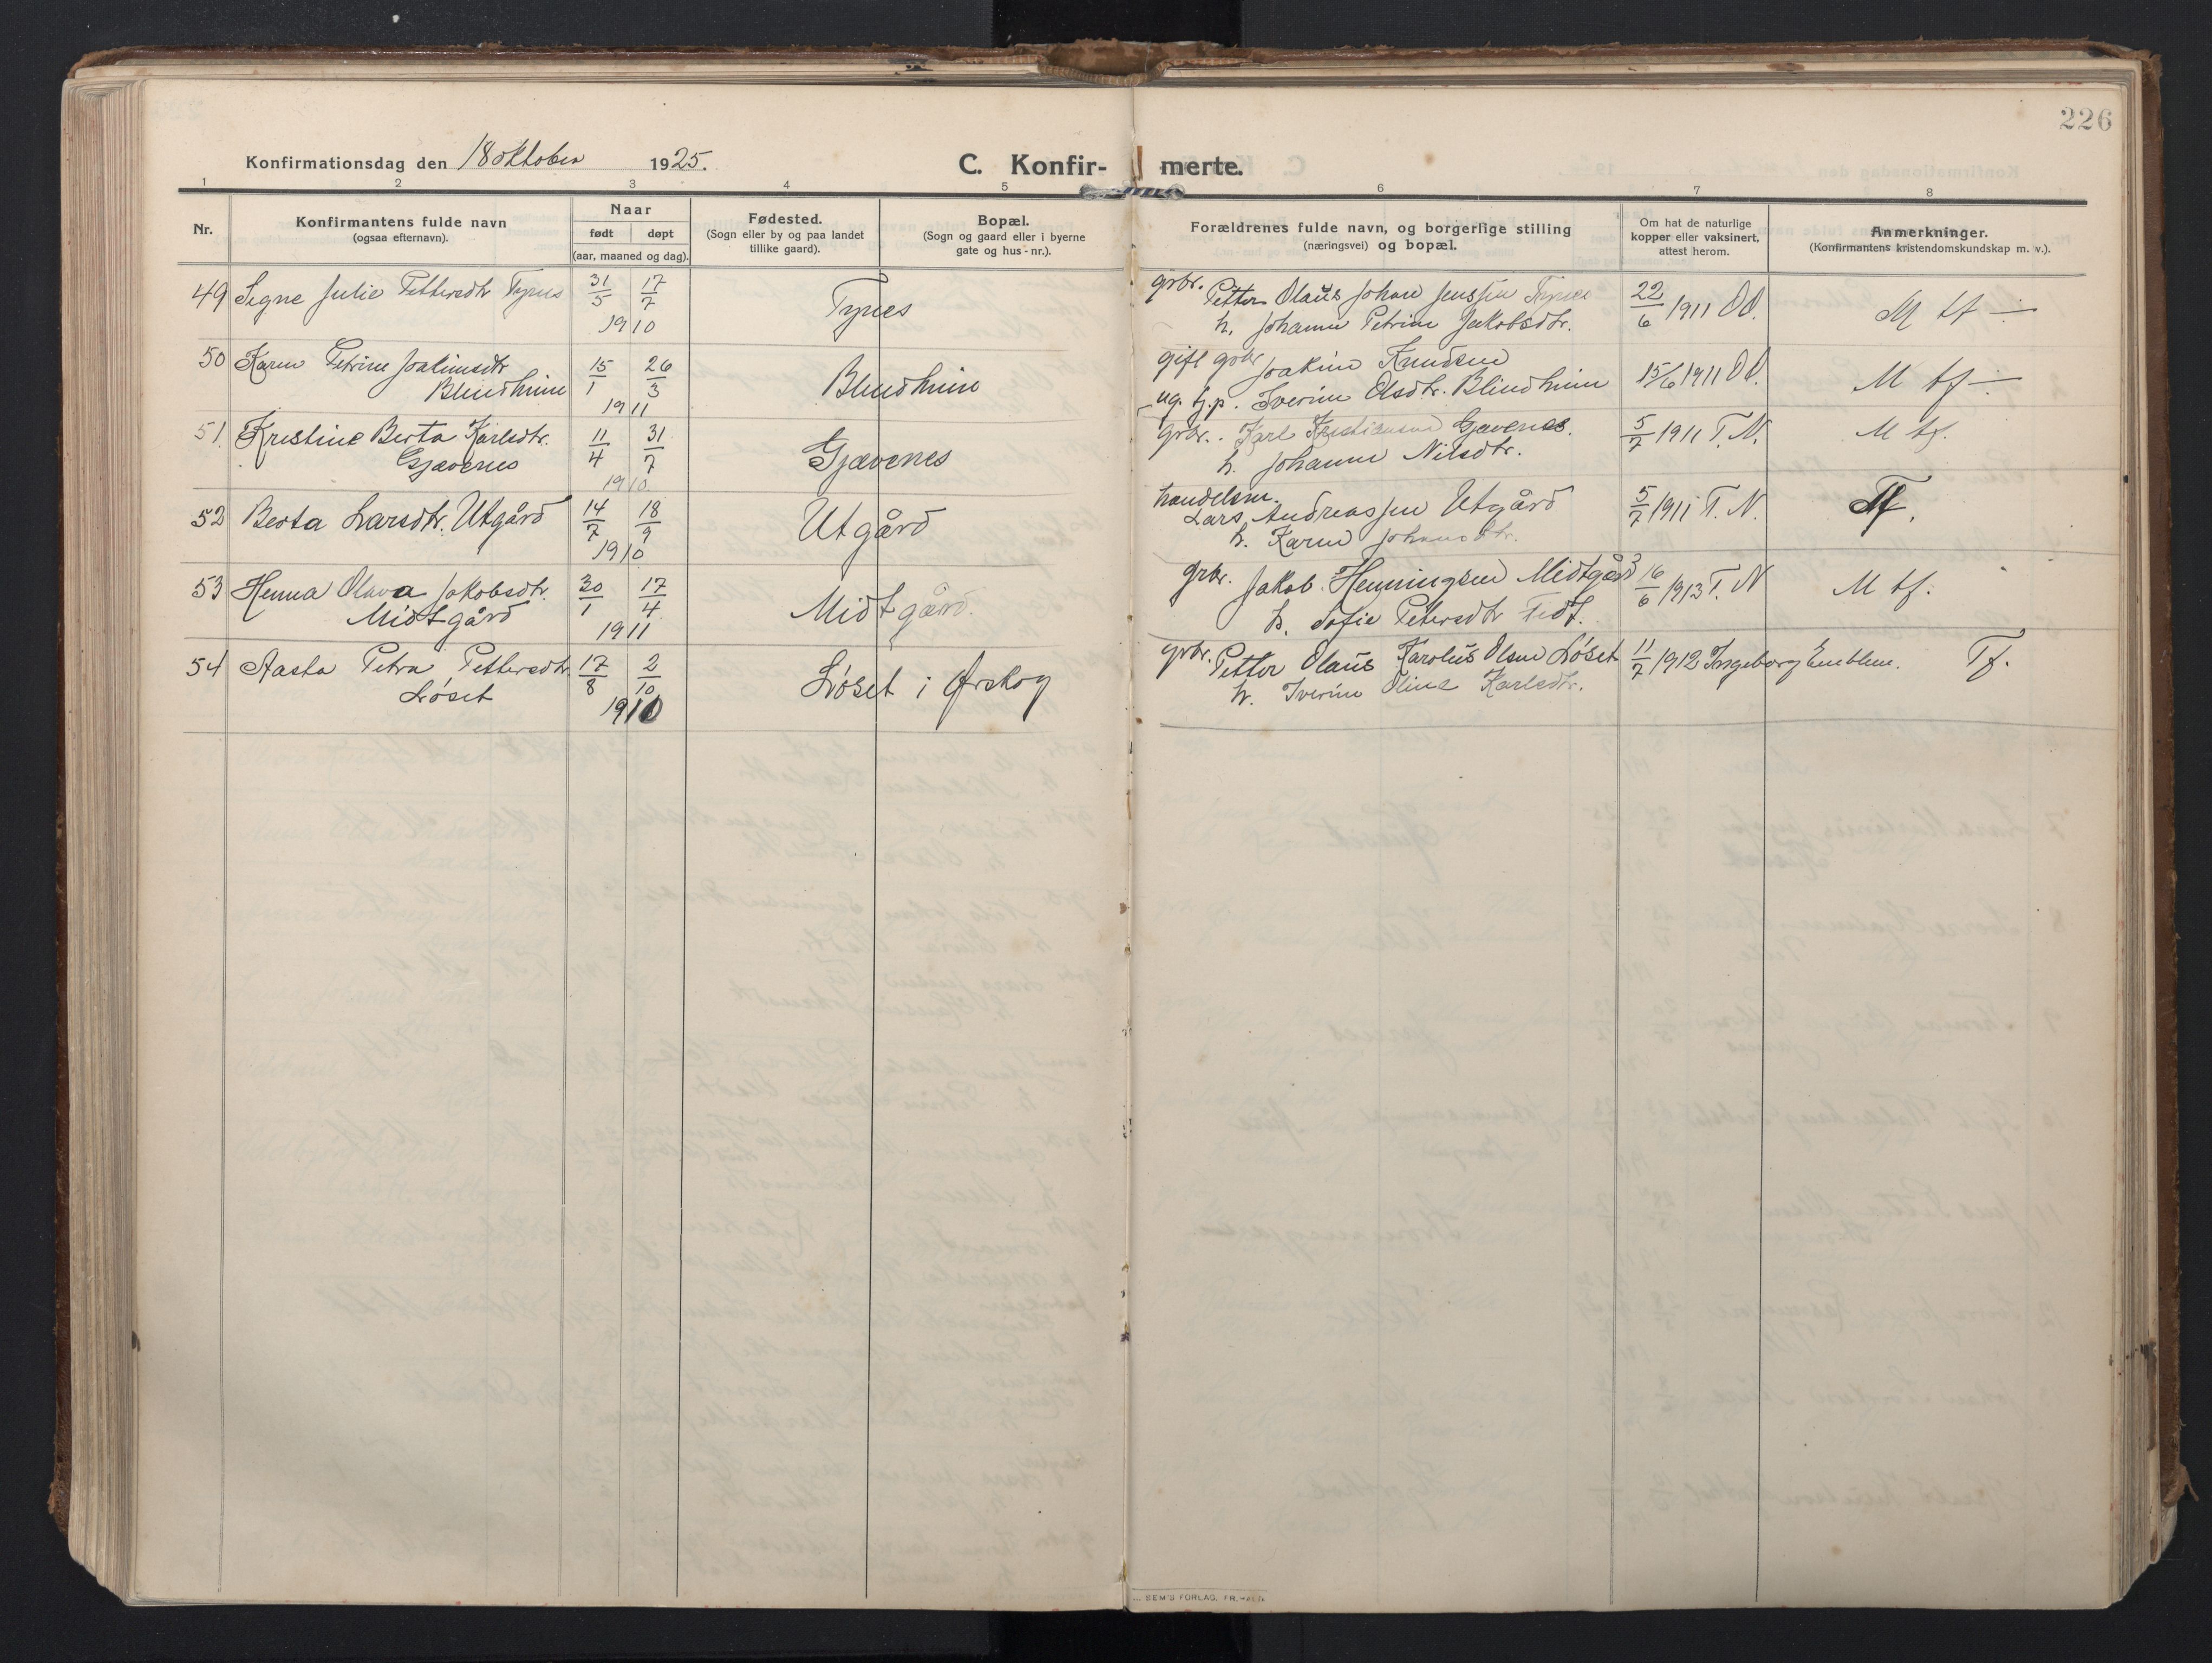 226
Konfirmationsdag den 18 oktober 1925.
C. Konfir- merte.
1 2 3 4 5 6 7 8
Nr.
Konfirmantens fulde navn
(ogsaa efternavn).
Naar
født døpt
(aar, maaned og dag).
Fødested.
(Sogn eller by og paa landet
tillike gaard).
Bopæl.
(Sogn og gaard eller i byerne
gate og hus-nr.).
Forældrenes fulde navn, og borgerlige stilling
(næringsvei) og bopæl.
Om hat de naturlige
kopper eller vaksinert,
attest herom.
Anmerkninger.
(Konfirmantens kristendomskundskap m. v.).
49 Signe Julie Pettersdtr Tynes 31/5 17/7
1910
Tynes
grbr. Petter Olaus Johan Jenssen Tynes
h. Johanne Petrine Jakobsdtr.
22/6 1911 O.O.
M tf —
50 Karen Petrine Joakimsdtr
Blindheim
15/1 26/3
1911
Blindheim
gift grbr Joakim Knudsen
ug. tj.p. Iverine Olsdtr. Blindheim
15/6 1911 O.O.
M tf —
51. Kristine Berta Karlsdtr.
Gjævenes
11/4 31/7
1910
Gjævenes
grbr. Karl Kristiansen Gjævenes.
h. Johanne Nilsdtr.
5/7 1911 T. N.
M tf.
52 Berta Larsdtr. Utgård 14/7 18/9
1910
Utgård
handelsm.
Lars Andreassen Utgård
h. Karen Johansdtr.
5/7 1911 T. N.
Tf.
53 Henna Olava Jakobsdtr.
Midtgård
30/1 17/4
1911
Midtgård.
grbr. Jakob Henningsen Midtgård
h. Sofie Petersdtr
16/6 1913 T. N
M tf.
54 Aasta Petra Pettersdtr.
Løset
17/8 2/10
1910
Løset i Ørskog
grbr. Petter Olaus Karolus Olsen Løset
h. Iverine Oline Karlsdtr.
11/7 1912 Ingeborg Emblem.
Tf.
SEM'S FORLAG, FR.